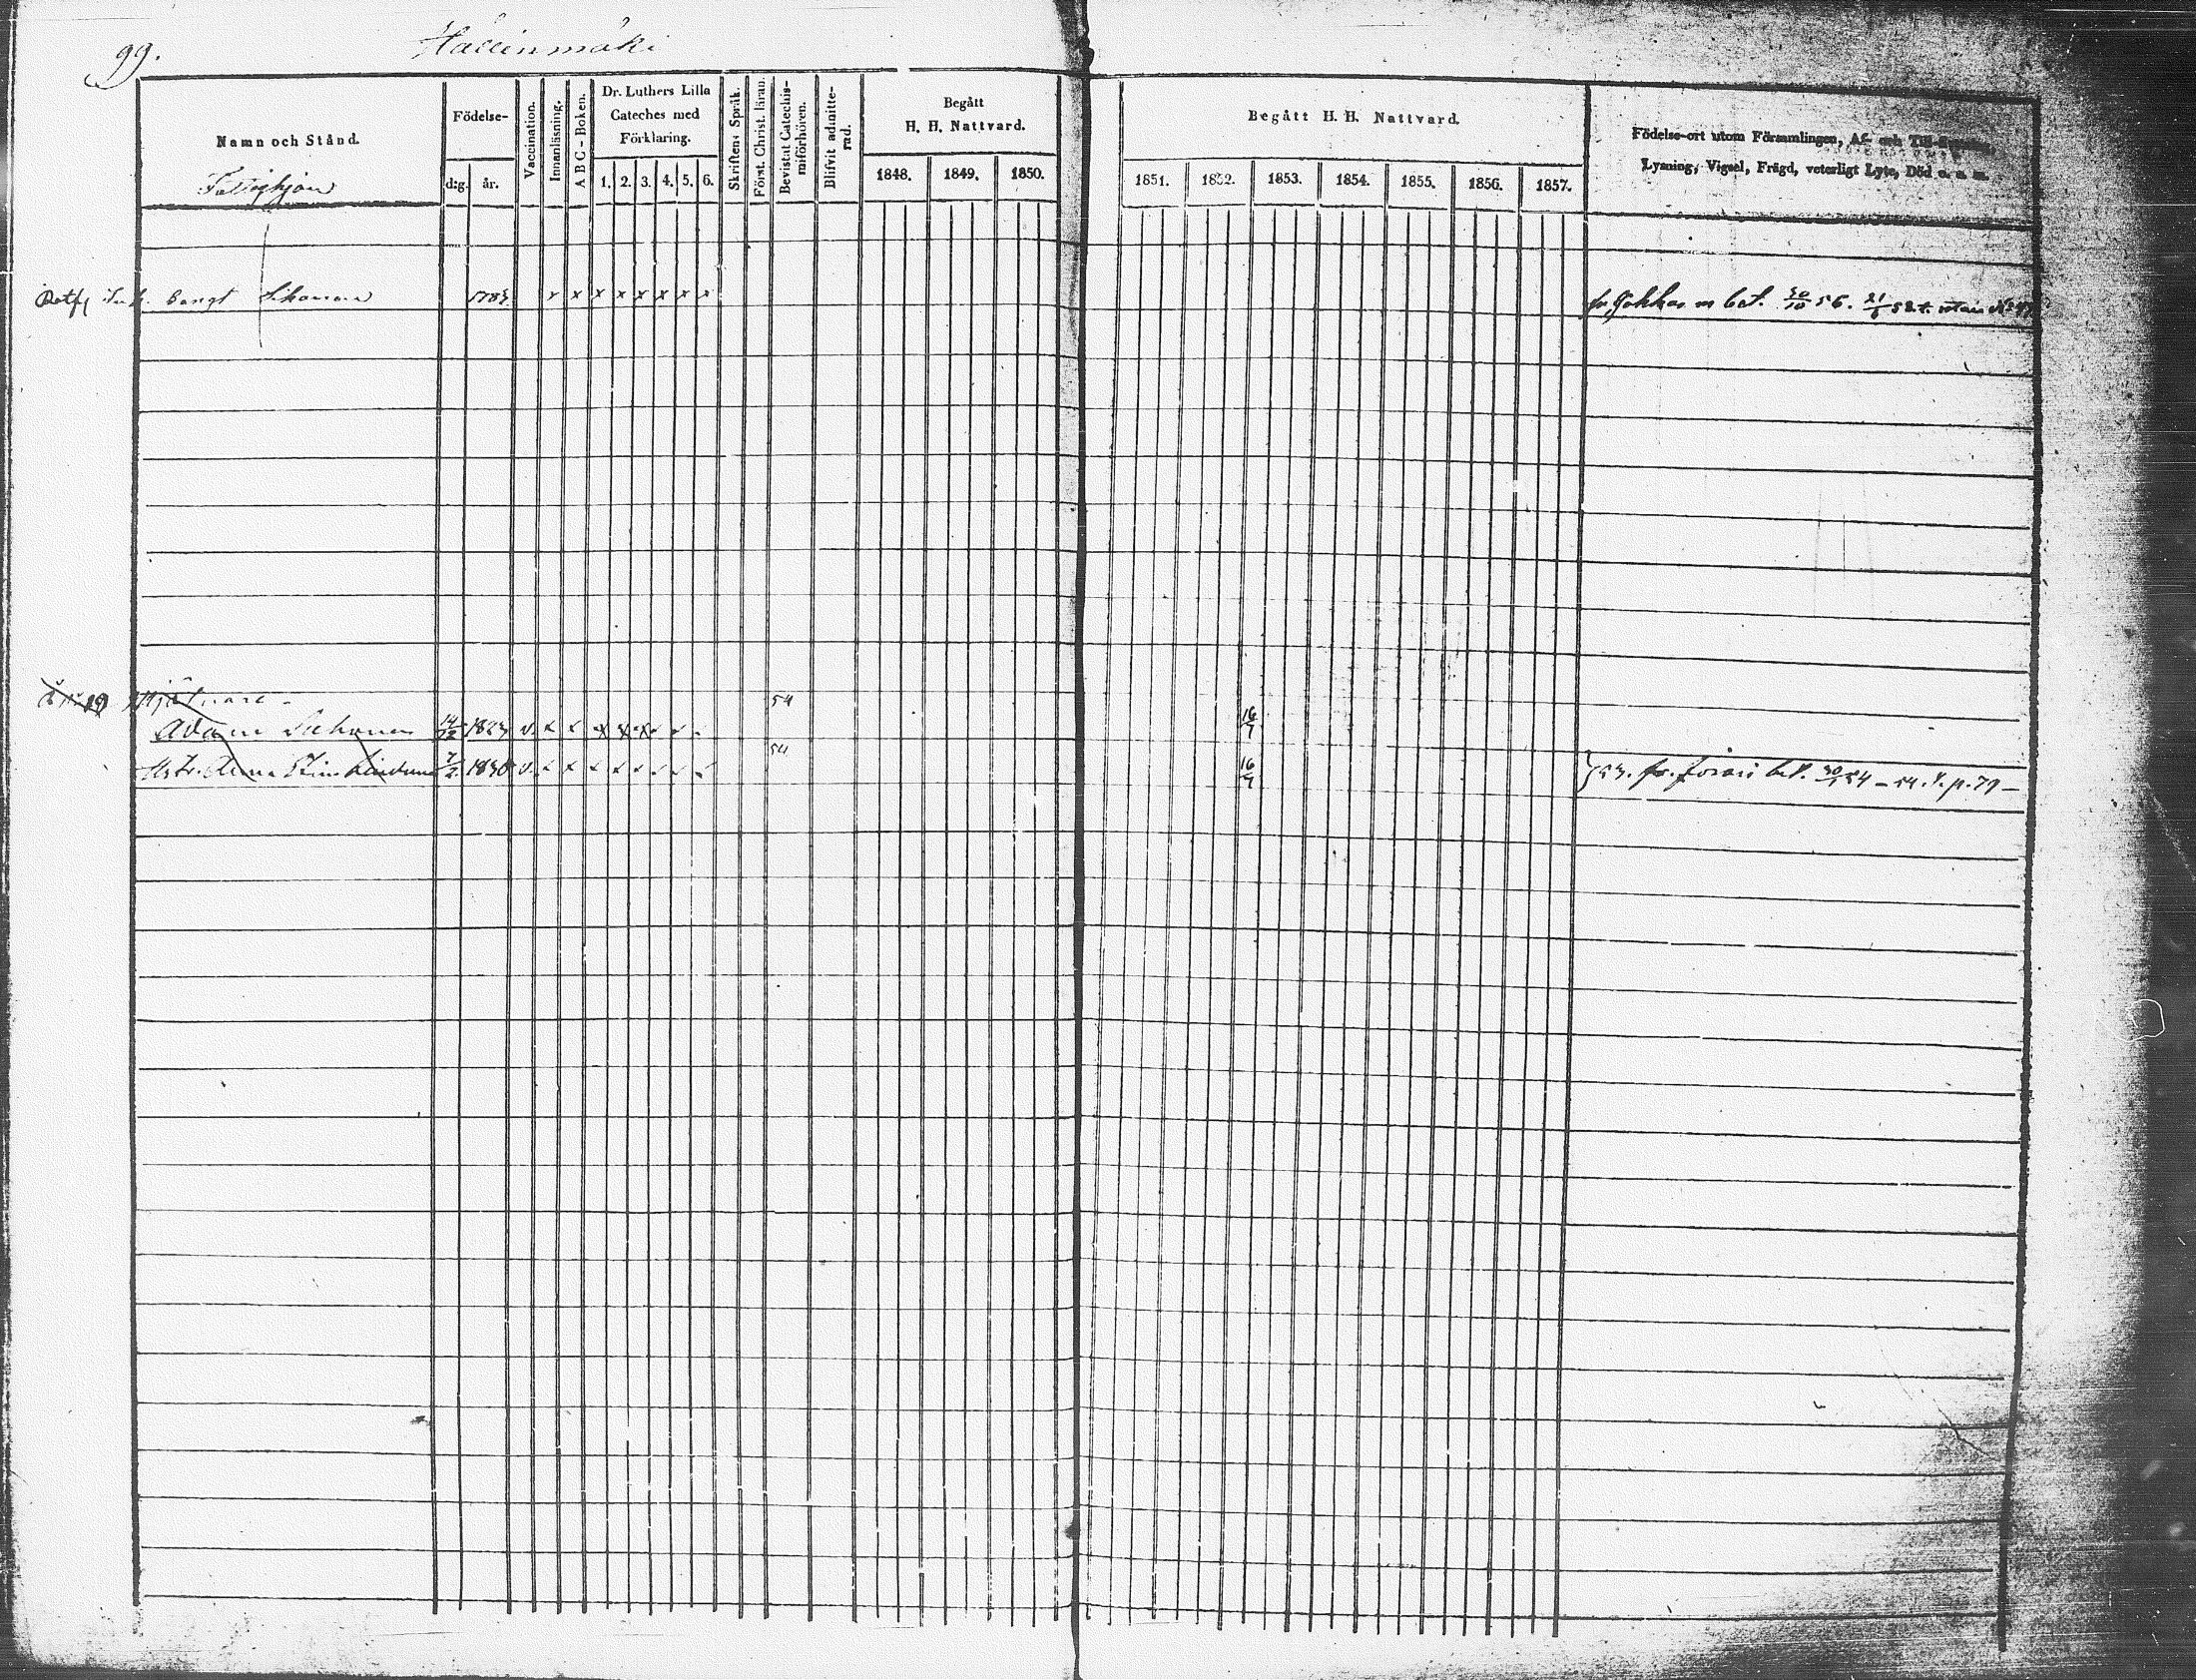 99. Hällinmäki
Namn och Stånd.
Fattighjon
Födelse-
d:g. år.
Vaccination.
Innanläsning.
A B C - Boken.
Dr. Luthers Lilla
Cateches med
Förklaring.
1. 2. 3. 4. 5. 6.
Skriftens Språk.
Först. Christ. läran.
Bevistat Catechis-
miförhören.
Blifvit admitte-
rad.
Begått
H. H. Nattvard.
1848. 1849. 1850.
Begått H. H. Nattvard.
1851. 1852. 1853. 1854. 1855. 1856. 1857.
Födelse-ort utom Församlingen, Af- och Till-
Lysning, Vigsel, Frägd, veterligt Lyte, Död o. s. m.
Bengt 1783. x x x x x x x x bet. 30/10 56. 21/6 58
54
Adam 14/12 1823 v. x x x x x 16/7
54
Hstr. Anna Stina 7/2 1830 v. x x x x x 16/7 53. fr. bet. 54 - 54. p. 79 -